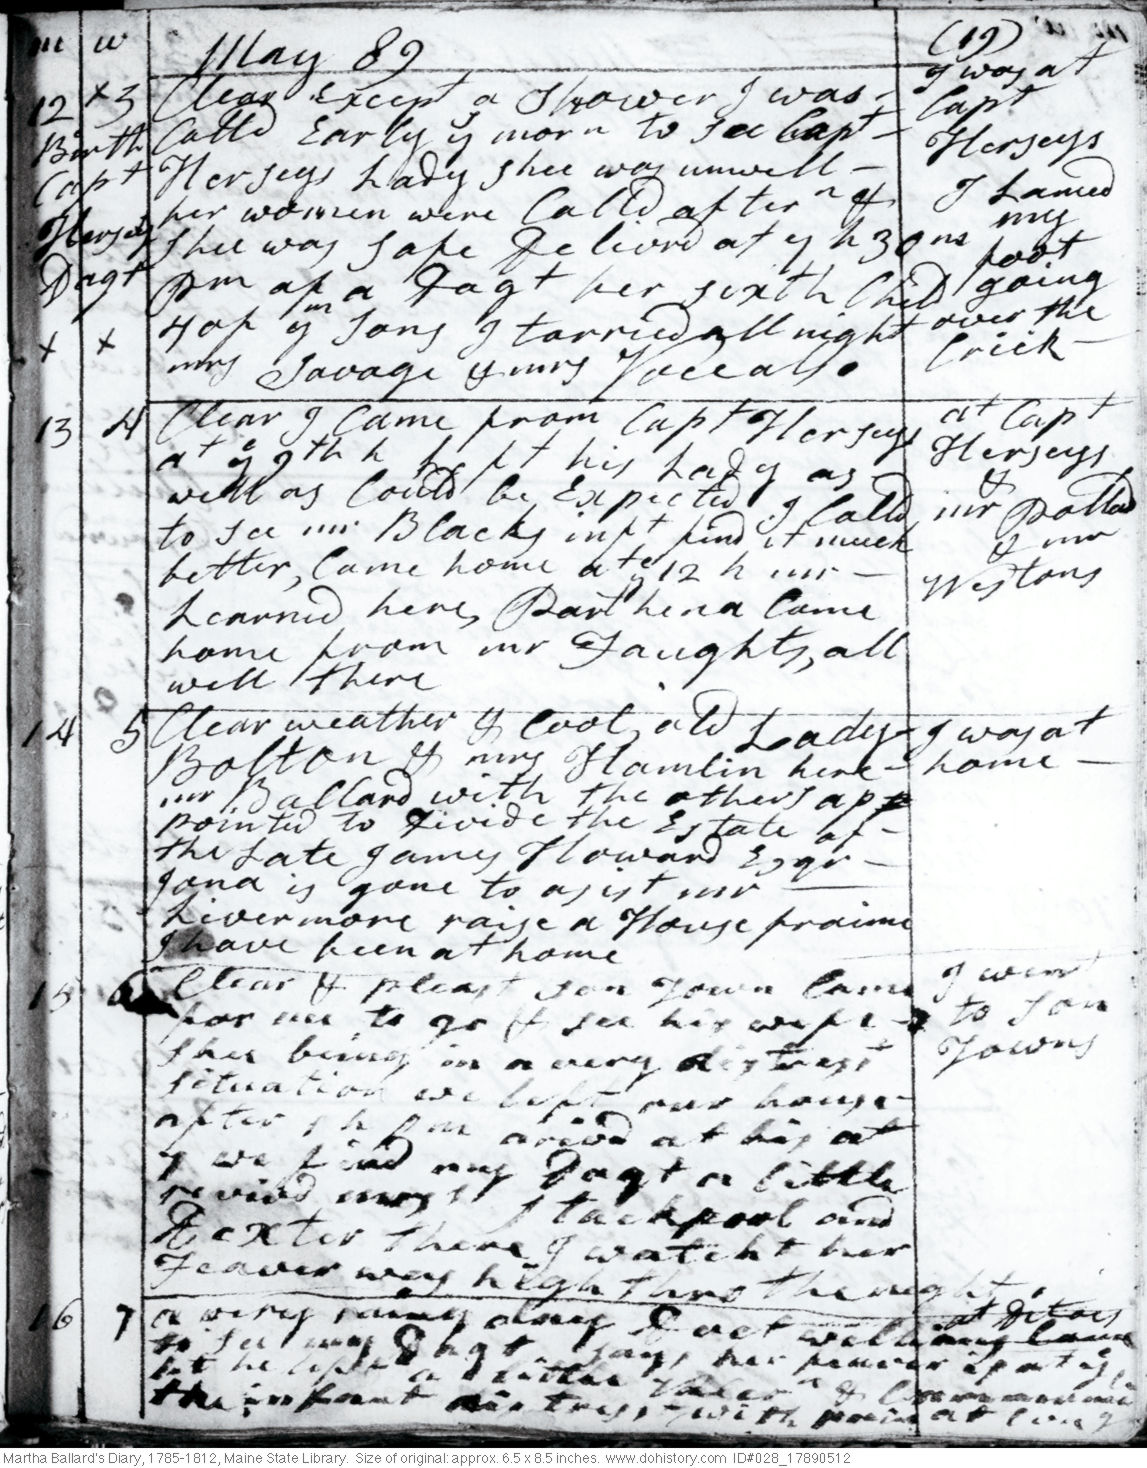 m w May 89 (19)
12 x3 Clear Except a Shower I was
Calld Early y morn to see Capt
Herseys Lady shee was unwell
her women were Calld aftern &
shee was safe Delivrd at y h 30 ms
pm of a Dagt her sixth Child
4 of ym Sons I tarried all night
mrs Savage & mrs Voce also
Birth
Capt
Hersey
Dagt
x x
I was at
Capt
Herseys
I Lamed
my
foot
going
over the
Crick
13 4 Clear I Came from Capt Herseys
at ye 9th h left his Lady as
well as Could be Expected I Calld
to see mr Blacks inft find it much
better, Came home at ye 12 h mr
Learned here, Parthena Came
home from mr Faughts, all
well there
at Capt
Herseys
&
mr Pollard
& mr
Westons
14 5 Clear weather & Cool, old Lady
Bolton & mrs Hamlin here
mr Ballard with the others ap
pointed to Divide the Estate of
the Late James Howard Esqr
Jona is gone to asist mr
Livermore raise a House fraime
I have been at home
I was at
home
15 6 Clear & pleast son Town Came
for me to go & see his wife
shee being in a very distrest
situation we left our house
after 1 h pm arivd at his at
7 we find my Dagt a little
revivd mrs Stackpool and
Dexter there I watcht her
Feaver was high thro the night
I went
to son
Towns
16 7 a very rainy day Doct
to see my Dagt says her feaver is
he left a little
the infant distrest with pain at
at Ditoes